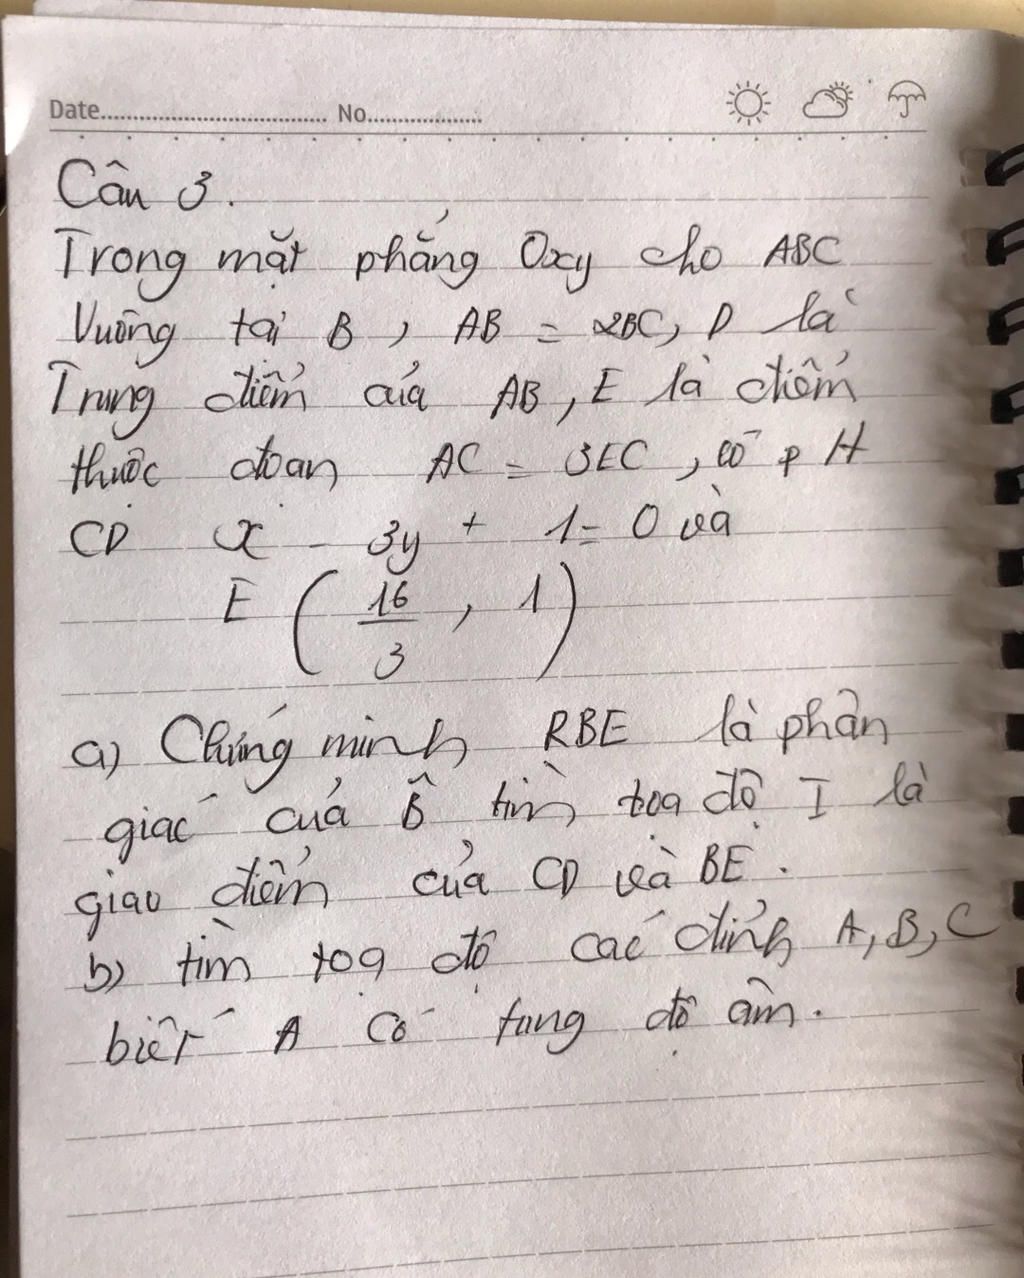 Date................................ No..................
Câu 3.
Trong mặt phẳng Oxy cho ABC
Vuông tại B, AB = 2BC, D là
Trung điểm của AB, E là điểm
thuộc đoạn AC = 3EC, có p H
CD x - 3y + 1 = 0 và
E (16/3, 1)
a) Chứng minh RBE là phân
giác của B̂ tìm toạ độ I là
giao điểm của CD và BE.
b) tìm toạ độ các đỉnh A, B, C
biết A có tung độ âm.